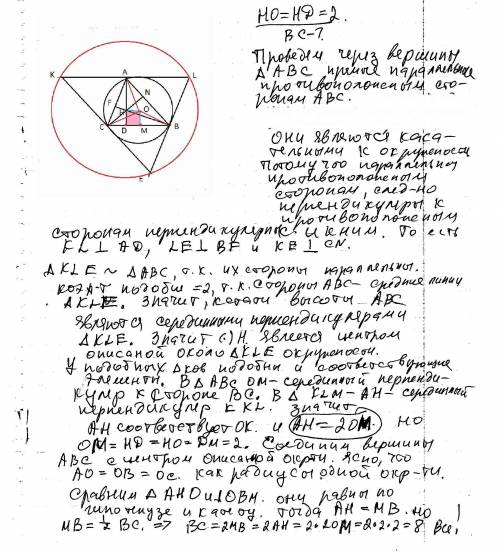 HO=HD=2.
BC-?
Проведем через вершины
△ABC прямые параллельные
противоположным сто-
ронам ABC.
K
A
L
N
F
H
O
C
D
M
B
E
Они являются каса-
тельными к окружности
потому что параллельны
противоположным
сторонам, след-но
перпендикулярны к
противоположным
сторонам перпендикулярны к ним. То есть
KL⊥AD, LE⊥BF и KE⊥CN.
△KLE ~ △ABC, т.к. их стороны параллельны.
коэф-т подобия =2, т.к. стороны ABC- средние линии
△KLE. Значит, высоты ABC
являются серединными перпендикулярами
△KLE. Значит (·)H является центром
описаной около △KLE окружности.
У подобных △ков подобны и соответствующие
элементы. В △ABC OM-серединный перпенди-
куляр к стороне BC. В △KLM-AH-серединный
перпендикуляр к KL. Значит
AH соответствует OK. и AH=2OM. но
OM=HD=HO=DM=2. Соединим вершины
ABC с центром описаной окр-ти. Ясно, что
AO=OB=OC. как радиусы одной окр-ти.
Сравним △AHO и △OBM. они равны по
гипотенузе и катету. тогда AH=MB. но
MB=½BC. => BC=2MB=2AH=2·2OM=2·2·2=8 Все!